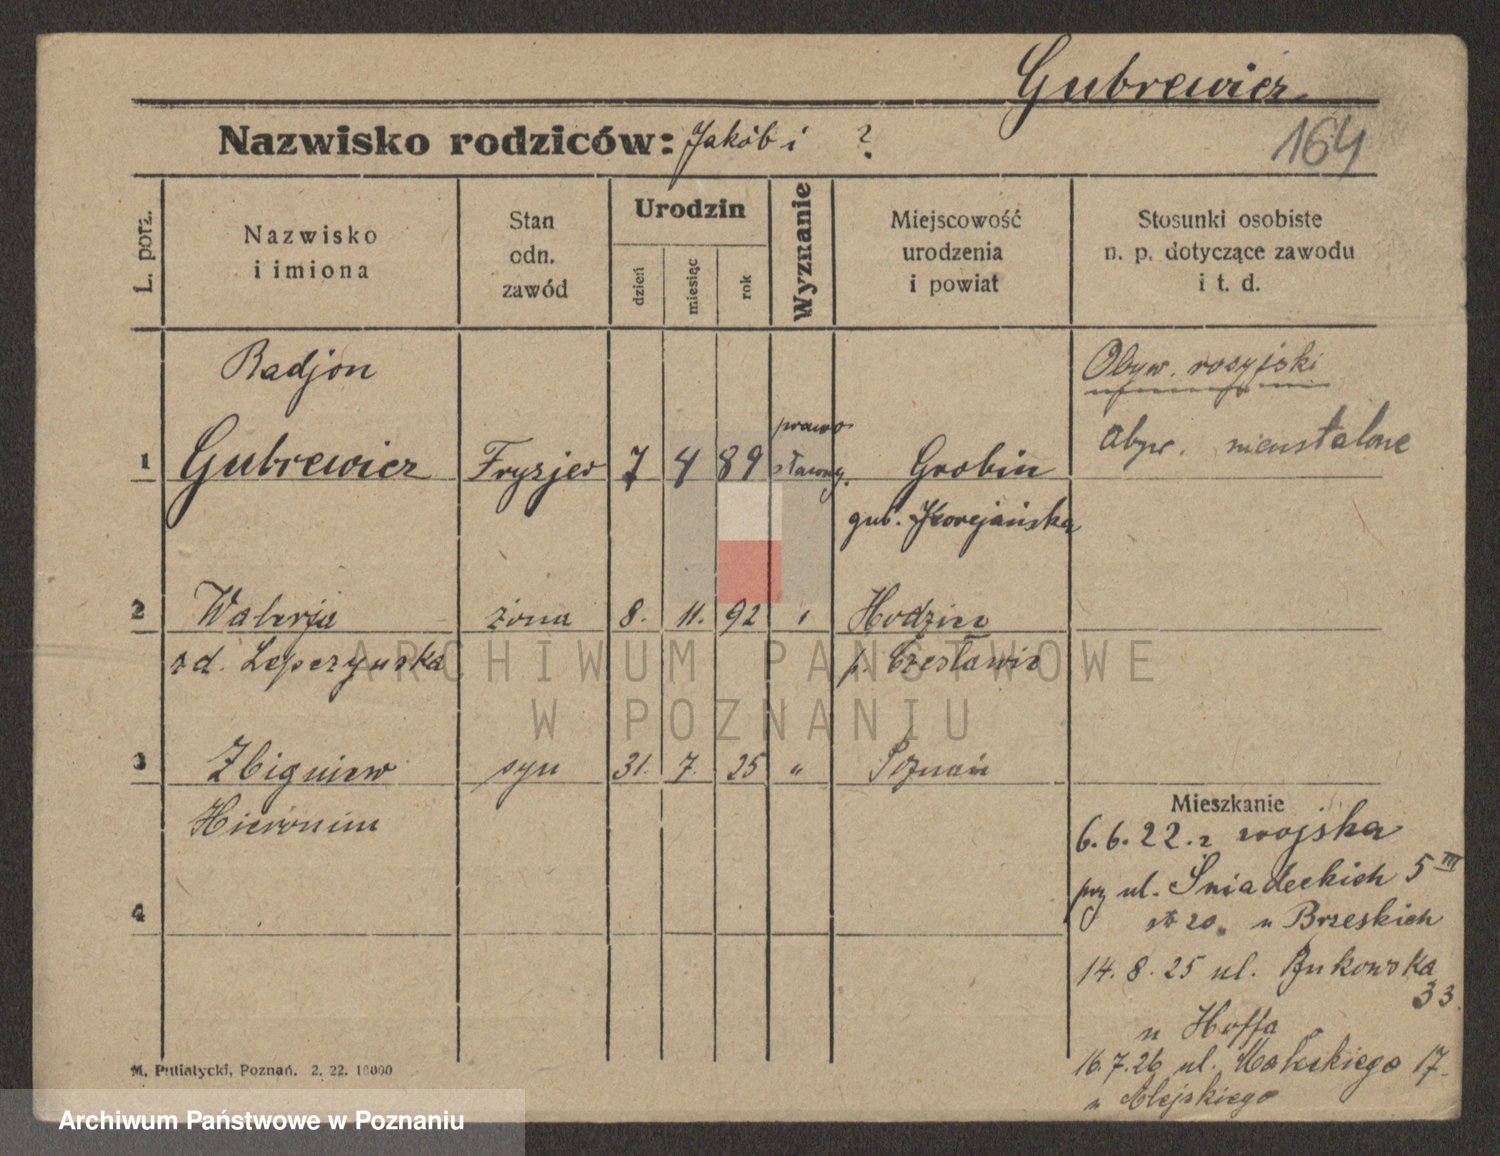 Gubrewicz
Nazwisko rodziców: Jakób i ?
164
L. porz.
Nazwisko
i imiona
Stan
odn.
zawód
Urodzin
dzień
miesiąc
rok
Wyznanie
Miejscowość
urodzenia
i powiat
Stosunki osobiste
n. p. dotyczące zawodu
i t. d.
Radjon
Obyw. rosyjski
1 Gubrewicz Fryzjer 7 4 89 prawo
sławny. Grobin
obyw. nieustalone
gub.
2 Walerja żona 8. 11. 92 " Hodzin
zd. Lepczyńska
p.
3 Zbigniew syn 31. 7. 25 " Poznań
Hieronim
4
Mieszkanie
6.6.22. z wojska
przy ul. Śniadeckich 5 III
20. u Brzeskich
14.8.25 ul. Bukowska
33.
u Hoffa
16.7.26 ul. 17.
u Alejskiego
M. Putiatycki, Poznań. 2. 22. 10000
ARCHIWUM PAŃSTWOWE
W POZNANIU
Archiwum Państwowe w Poznaniu